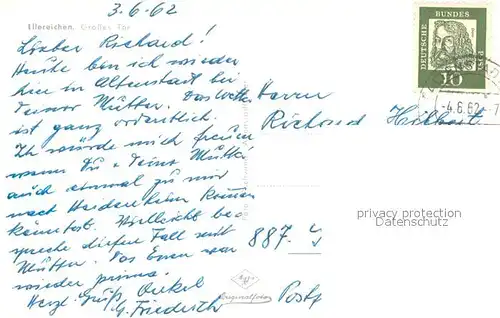 3.6.62
Illereichen. Großes Tor
Lieber Richard!
Heute bin ich wieder
hier in Altenstadt bei
deiner Mutter. Das Wetter
ist ganz ordentlich.
Ich würde mich freuen
wenn Du + Deine Mutti
auch einmal zu mir
nach Heidenheim kommen
könntest. Vielleicht be-
spreche diesen Fall mit
Mutter. Das Essen war
wieder prima.
Herzl. Grüß Onkel
G. Friederich
DEUTSCHE BUNDESPOST
10
-4.6.62-7
Herrn
Richard
887.
Postf
Originalfoto
privacy protection
Datenschutz